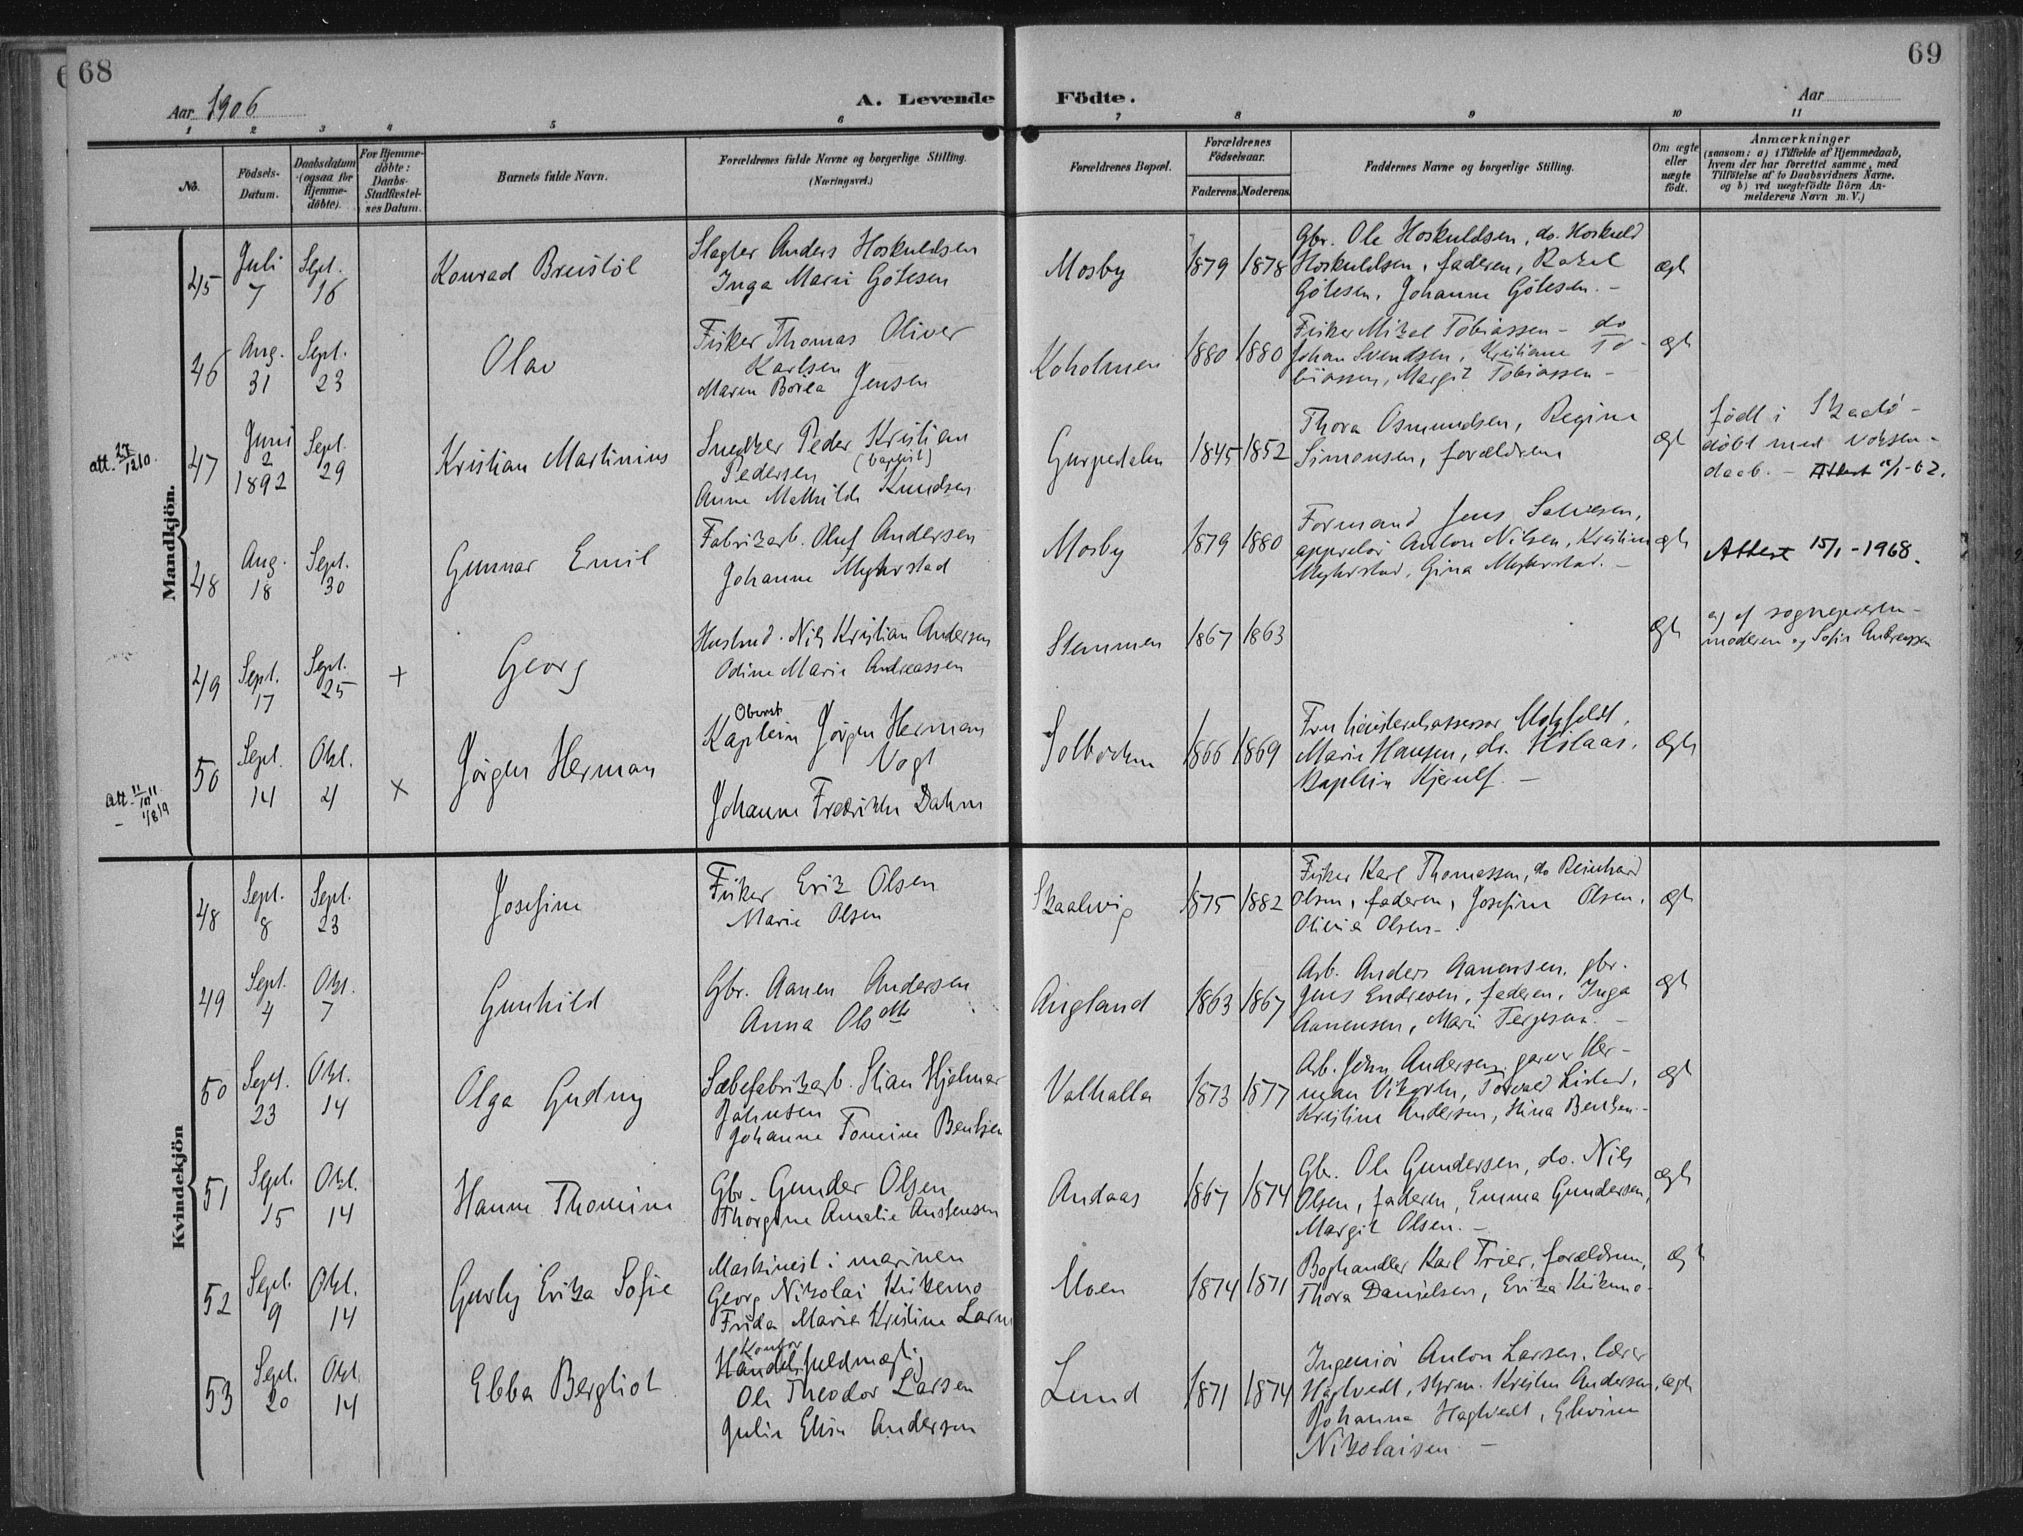 68
69
Aar 1906
A. Levende Födte.
Aar
1 2 3 4 5 6 7 8 9 10 11
No.
Födsels-Datum.
Daabsdatum (ogsaa for Hjemme-döbte).
For Hjemme-döbte: Daabs-Stadfæstel-ses Datum.
Barnets fulde Navn.
Forældrenes fulde Navne og borgerlige Stilling.
(Næringsvei.)
Forældrenes Bopæl.
Forældrenes Födselsaar.
Faderens. Moderens.
Faddernes Navne og borgerlige Stilling.
Om ægte eller uægte födt.
Anmærkninger
(saasom: a) i Tilfælde af Hjemmedaab,
hvem der har forrettet samme, med
Tilföielse af to Daabsvidners Navne,
og b) ved uægtefödte Börn An-
melderens Navn m. V.)
Mandkjön.
45
Juli 7
Sept. 16
Konrad Breistöl
Slagter Anders Hoskuldsen
Inga Marie Götesen
Mosby
1879 1878
Gbr. Ole Hoskuldsen, do. Hoskuld
Hoskuldsen, faderen, Rakel
Götesen, Johanne Götesen. -
ægte
46
Aug. 31
Sept. 23
Olav
Fisker Thomas Oliver
Karlsen
Maren Borea Jensen
Koholmen
1880 1880
Fisker Mikal Tobiassen - do
Johan Svendsen, Kristiane To-
biassen, Margit Tobiassen -
ægte
att. 27/12 10.
47
Juni 2 1892
Sept. 29
Kristian Martinius
Snedker Peder Kristian
Pedersen (baptist)
Anne Mathilde Knudsen
Gurpedalen
1845 1852
Thora Osmundsen, Regine
Simonsen, forældrene
ægte
födt i Skaatö -
döbt med voksen-
daab. - Attest
48
Aug. 18
Sept. 30
Gunnar Emil
Fabrikarb. Oluf Andersen
Johanne Myhrstad
Mosby
1879 1880
Formand Jens Salvesen,
appretör Anton Nilsen, Kristine
Myhrstad, Gina Myhrstad. -
ægte
Attest 15/1-1968.
49
Sept. 17
Sept. 25
+
Georg
Husmd. Nils Kristian Andersen
Odine Marie Andreassen
Stemmen
1867 1863
ægte
a) af sognepresten -
moderen og Sofie Andreassen
att. 11/10 11
- 1/8 19
50
Sept. 14
Okt. 4
x
Jörgen Herman
Oberst
Kaptein Jörgen Herman
Vogt
Johanne Fredrikke Dahm
1866 1869
Motzfeldt,
Marie Hansen,
Kaptein Kjerulf. -
ægte
Kvindekjön
48
Sept. 8
Sept. 23
Josefine
Fisker Erik Olsen
Marie Olsen
Skaalevig
1875 1882
Fisker Karl Thomassen, do Reinhard
Olsen, faderen, Josefine Olsen,
Olivia Olsen -
ægte
49
Sept. 4
Okt. 7
Gunhild
Gbr. Aanen Andersen
Anna Olsdtr
Augland
1863 1867
Arb. Anders Aanensen, gbr.
Jens Endresen, faderen, Inga
Aanensen, Marie Terjesen. -
ægte
50
Sept. 23
Okt. 14
Olga Gudny
Sæbefabrikarb. Stian Hjalmar
Johnsen
Johanne Tomine Bentsen
Valhalla
1873 1877
Arb. John Andersen, garver Her-
man
Kristine Andersen, Stina Bentsen. -
ægte
51
Sept. 15
Okt. 14
Hanne Thomine
Gbr. Gunder Olsen
Thorgine Amalie Austensen
Andaas
1867 1874
Gbr. Ole Gundersen, do. Nils
Olsen, faderen, Emma Gundersen,
Margit Olsen. -
ægte
52
Sept. 9
Okt. 14
Gurly Erika Sofie
Maskinist i marinen
Georg Nikolai Kirkemo
Frida Marie Kristine Larsen
Moen
1874 1871
Boghandler Karl Trier, forældrene,
Thora Danielsen, Erika Kirkemo -
ægte
53
Sept. 20
Okt. 14
Ebba Bergliot
Kontor
Handelsfuldmægtig
Ole Theodor Larsen
Julie Elise Andersen
Lund
1871 1874
Ingeniör Anton Larsen, lærer
Hagtvedt, styrm. Kristen Andersen,
Johanna Hagtvedt,
Nikolaisen -
ægte